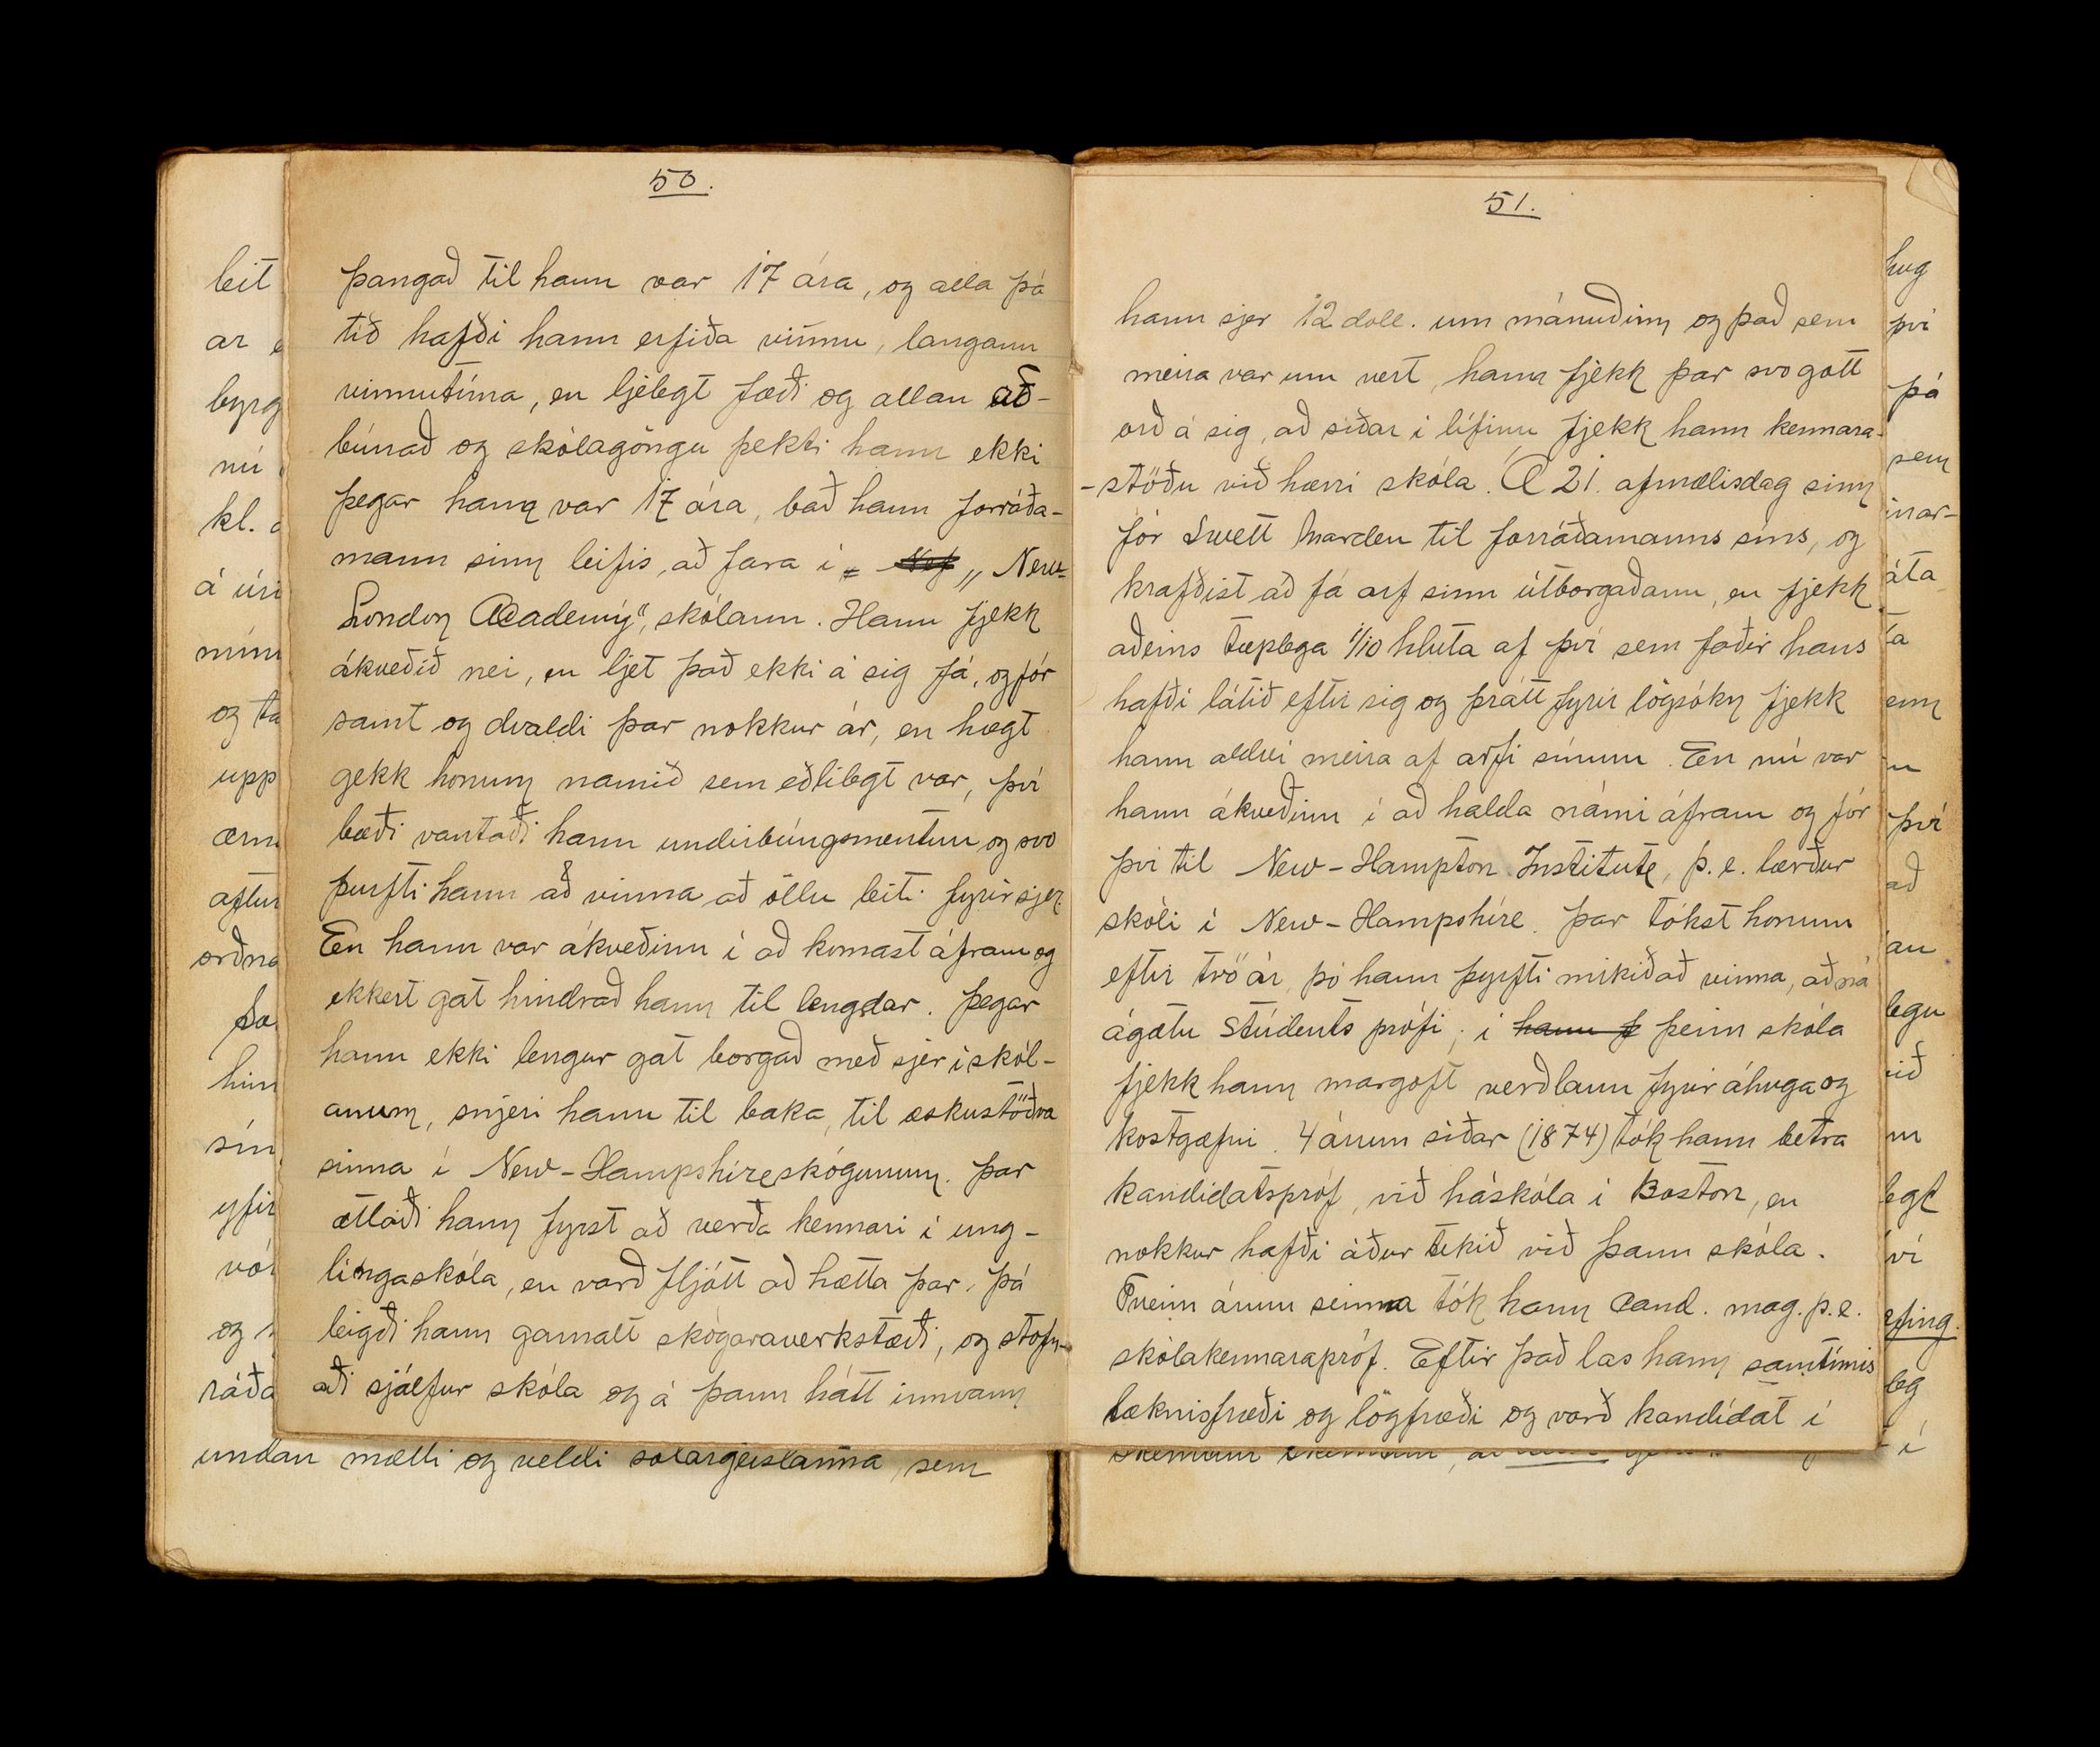 50.
þangað til hann var 17 ára, og alla þá
tíð hafði hann erfiða vinnu, langann
vinnutíma, en ljelegt fæði og allan að-
búnað og skólagöngu þekti hann ekki
þegar hann var 17 ára, bað hann forráða-
mann sinn leifis, að fara í „ Nef „ New-
London Academý", skólann. Hann fjekk
ákveðið nei, en ljet það ekki á sig fá, og fór
samt og dvaldi þar nokkur ár, en hægt
gekk honum namið sem eðlilegt var, því
bæði vantaði hann undirbúngsmentun og svo
þurfti hann að vinna að öllu leiti fyrir sjer.
En hann var ákveðinn í að komast áfram og
ekkert gat hindrað hann til lengdar. Þegar
hann ekki lengur gat borgað með sjer í skól-
anum, snjeri hann til baka, til æskustöðva
sinna í New-Hampshireskógunum. Þar
ætlaði hann fyrst að verða kennari í ung-
lingaskóla, en varð fljótt að hætta þar. Þá
leigði hann gamalt skógaraverkstæði, og stofn-
aði sjálfur skóla og á þann hátt innvann
undan mætti og veldi sólargeislanna, sem
leit
ar
byrg
nú
kl.
á úri
mínu
og ta
upp
ærn
aftur
orðna
hin
sín
yfir
vór
og
ráða
51.
hann sjer 12 doll. um mánuðinn og það sem
meira var um vert, hann fjekk þar svo gott
orð á sig, að síðar í lífinu fjekk hann kennara-
-stöðu við hærri skóla. Á 21. afmælisdag sinn
fór Swett Marden til forráðamanns síns, og
krafðist að fá arf sinn útborgaðann, en fjekk
aðeins tæplega 1/10 hluta af því sem faðir hans
hafði látið eftir sig og þrátt fyrir lögsókn fjekk
hann aldrei meira af arfi sínum. En nú var
hann ákveðinn í að halda námi áfram og fór
því til New-Hampton Institute, þ.e. lærður
skóli í New-Hampshíre. Þar tókst honum
eftir tvö ár, þó hann þyrfti mikið að vinna, að ná
ágætu stúdents prófi; í hann f þeim skóla
fjekk hann margoft verðlaun fyrir áhuga og
kostgæfni. 4 árum síðar (1874) tók hann betra
kandidatspróf, við háskóla í Boston, en
nokkur hafði áður tekið við þann skóla.
Tveim árum seinna tók hann Cand. mag. þ.e.
skólakennarapróf. Eftir það las hann samtímis
læknisfræði og lögfræði og varð kandídat í
hug
því
þá
sem
inar-
áta
ta
enn
u
því
að
an
legu
ið
m
legt
ví
efing.
leg
í